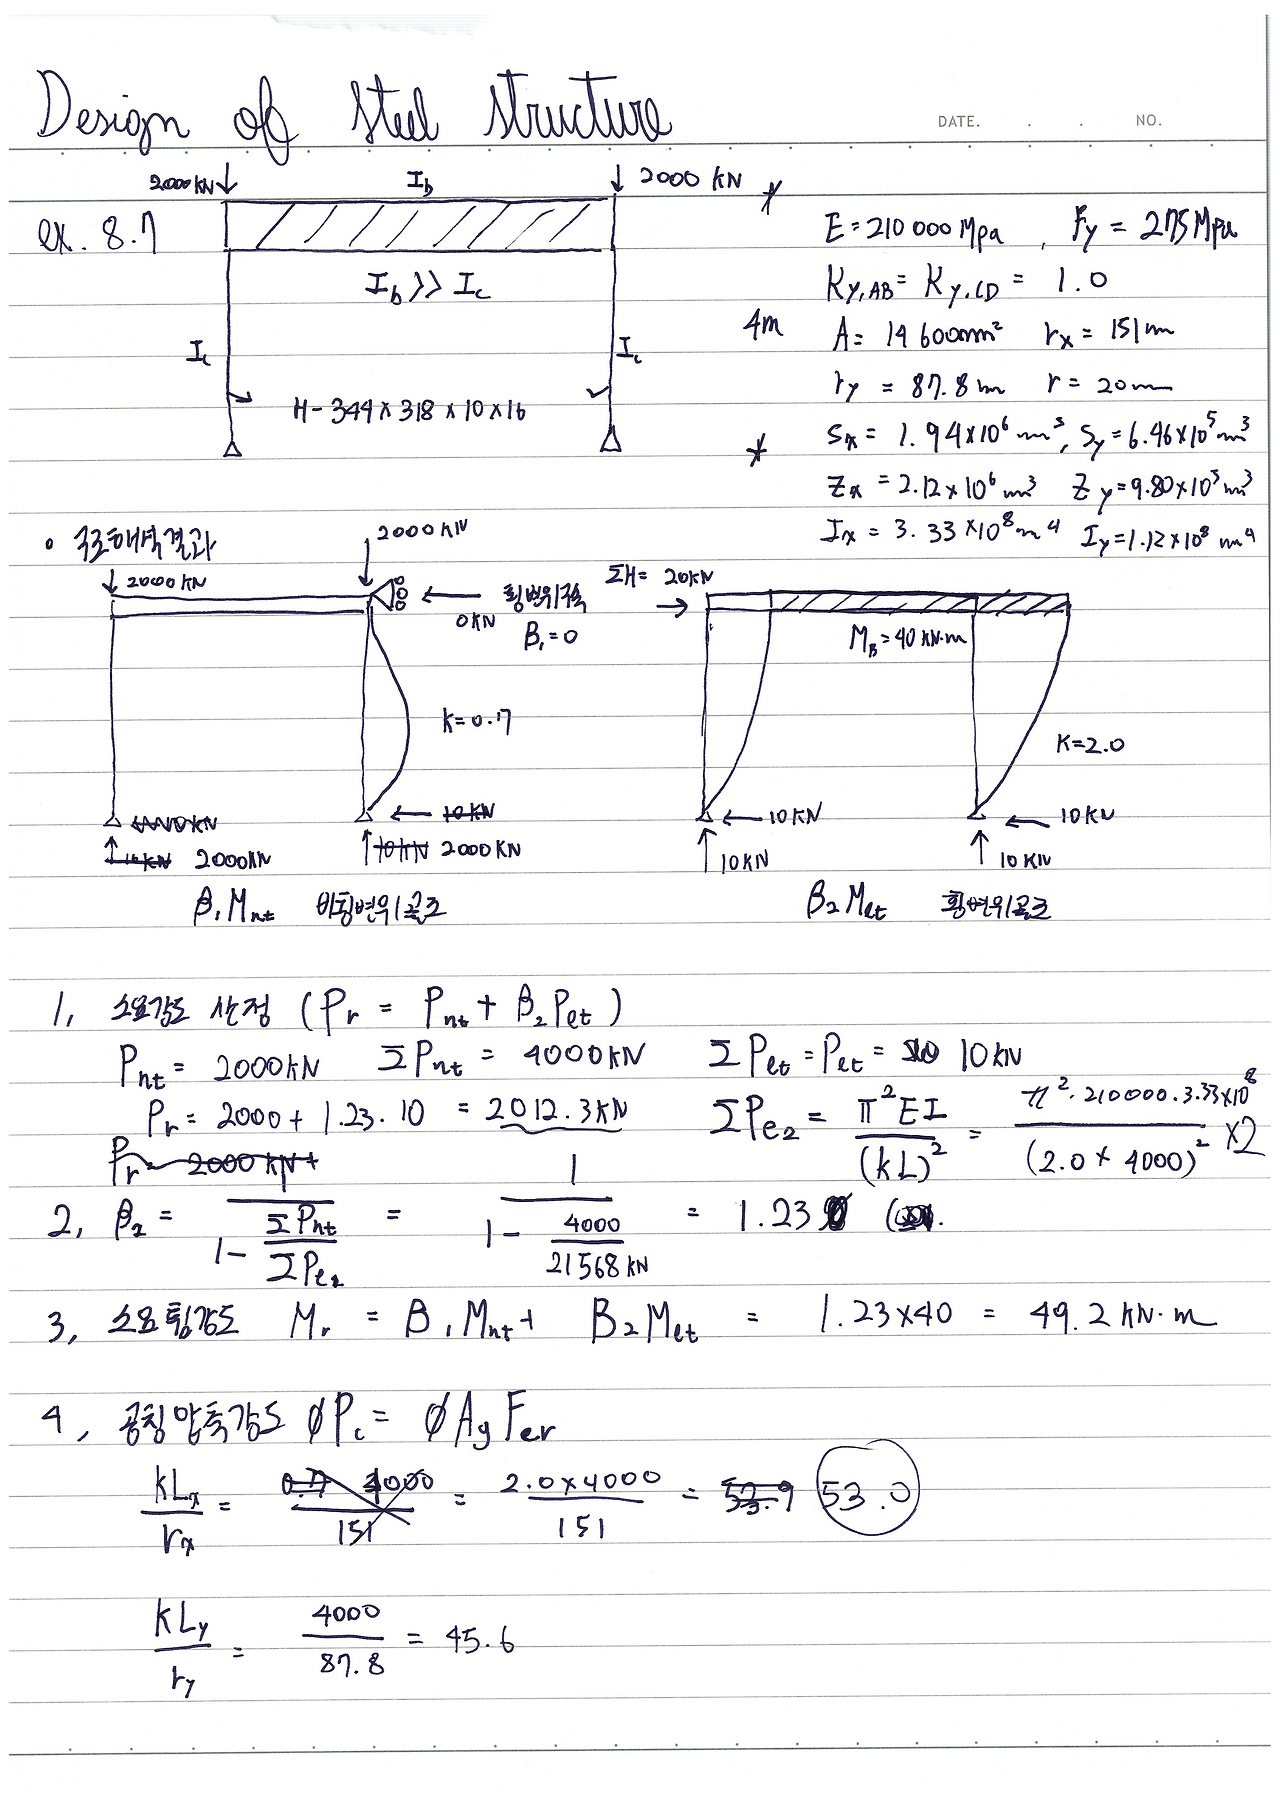 Design of Steel structure
DATE. . . NO.
2000 KN
I_b
2000 KN
ex. 8.7
I_b >> I_c
I_c
I_c
H-344×318×10×16
4m
E=210 000 Mpa, Fy = 275 Mpa
K_y,AB = K_y,CD = 1.0
A= 14 600mm² r_x = 151mm
r_y = 87.8mm r = 20mm
S_x = 1.94×10⁶ mm³, S_y = 6.46×10⁵ mm³
Z_x = 2.12×10⁶ mm³ Z_y = 9.80×10⁵ mm³
I_x = 3.33×10⁸ m⁴ I_y = 1.12×10⁸ m⁴
• 구조해석결과
2000 KN
2000 KN
0KN
횡변위구속
B₁=0
K=0.7
10KN
10KN
10KN 2000KN
10KN 2000KN
B₁M_nt 비횡변위골조
ΣH= 20KN
M_B = 40 KN·m
K=2.0
10KN
10KN
10KN
10KN
B₂M_lt 횡변위골조
1, 소요강도 산정 (P_r = P_nt + B₂P_lt)
P_nt = 2000KN ΣP_nt = 4000KN ΣP_lt = P_lt = 10KN
P_r = 2000 + 1.23·10 = 2012.3KN ΣP_e2 = π²EI/(kL)² = π²·210000·3.33×10⁸/(2.0×4000)² ×2
P_r = 2000 KN +
2, B₂ = 1/(1-ΣP_nt/ΣP_e2) = 1/(1-4000/21568KN) = 1.23
3, 소요휨강도 M_r = B₁M_nt + B₂M_lt = 1.23×40 = 49.2 KN·m
4, 공칭압축강도 øP_c = øA_g F_cr
kL_x/r_x = 0.7 4000/151 = 2.0×4000/151 = 52.9 53.0
kL_y/r_y = 4000/87.8 = 45.6